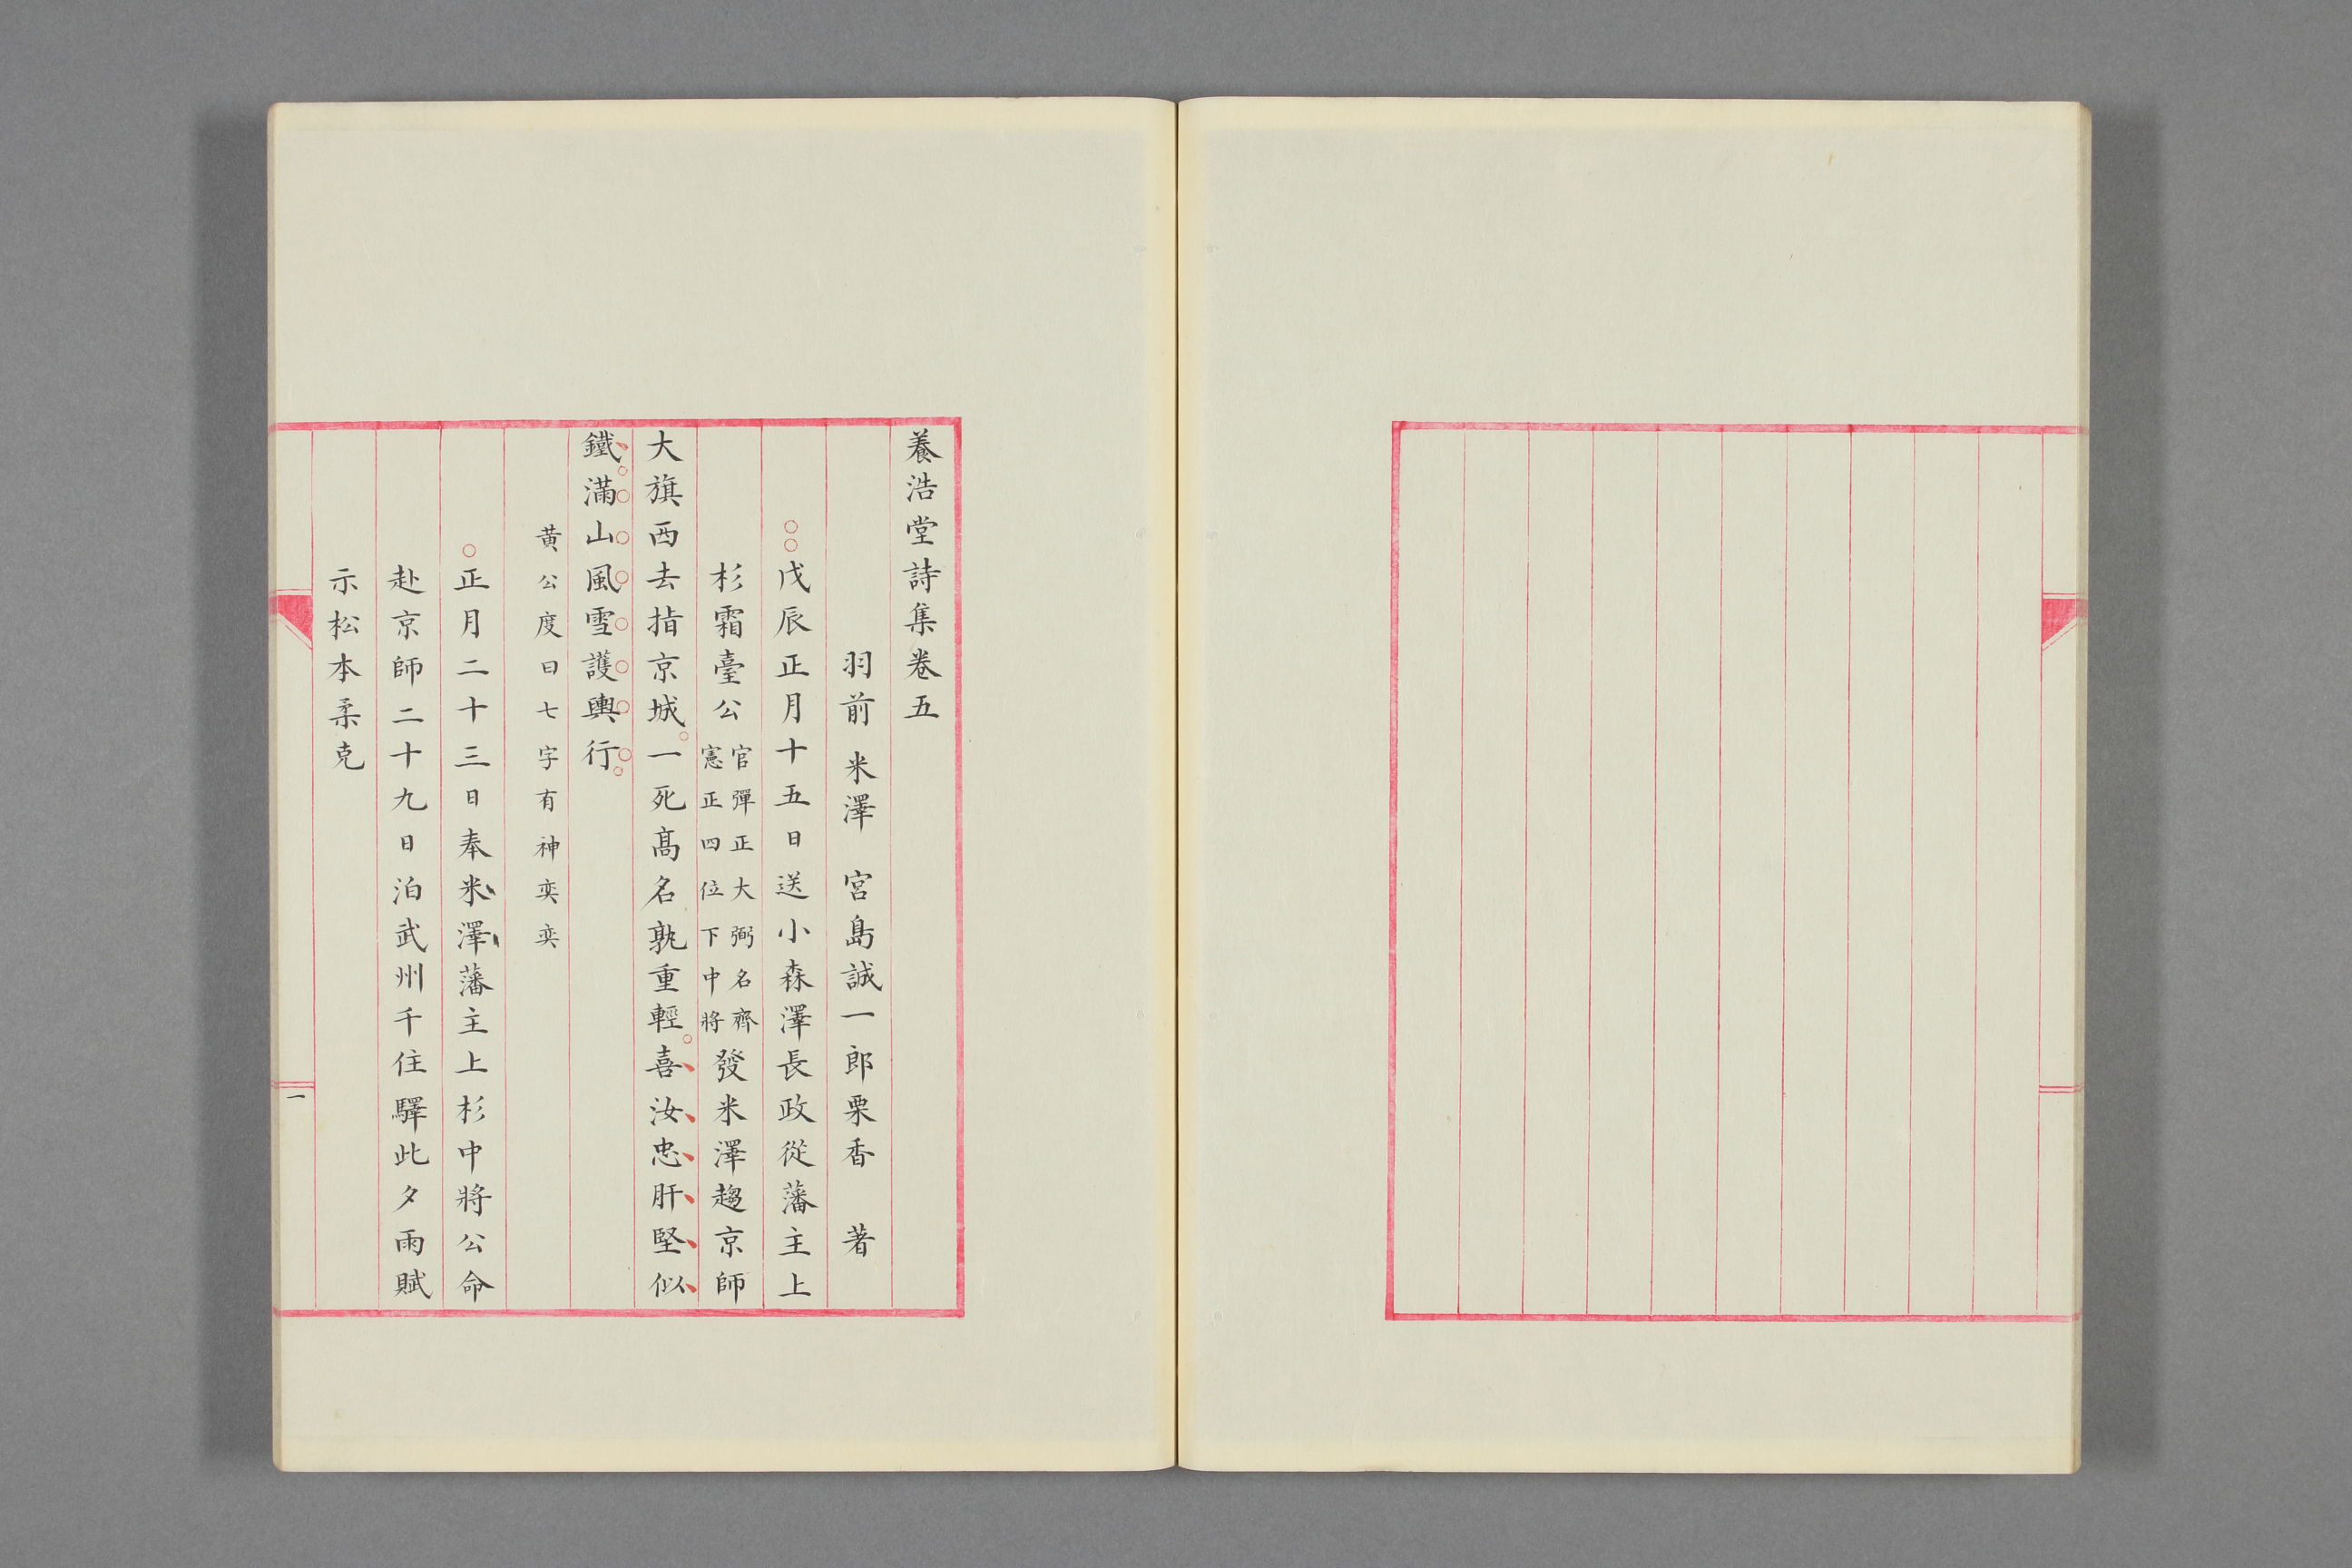 養浩堂詩集卷五
羽前 米澤 宮島誠一郎栗香 著
○○戊辰正月十五日送小森澤長政從藩主上
杉霜臺公官彈正大弼名齊憲正四位下中將發米澤趨京師
大旗西去指京城。一死髙名孰重輕。喜汝忠肝堅似
鐵滿山風雪護輿行。
黄公度曰七字有神奕奕
○正月二十三日奉米澤藩主上杉中將公命
赴京師二十九日泊武州千住驛此夕雨賦
示松本柔克
一